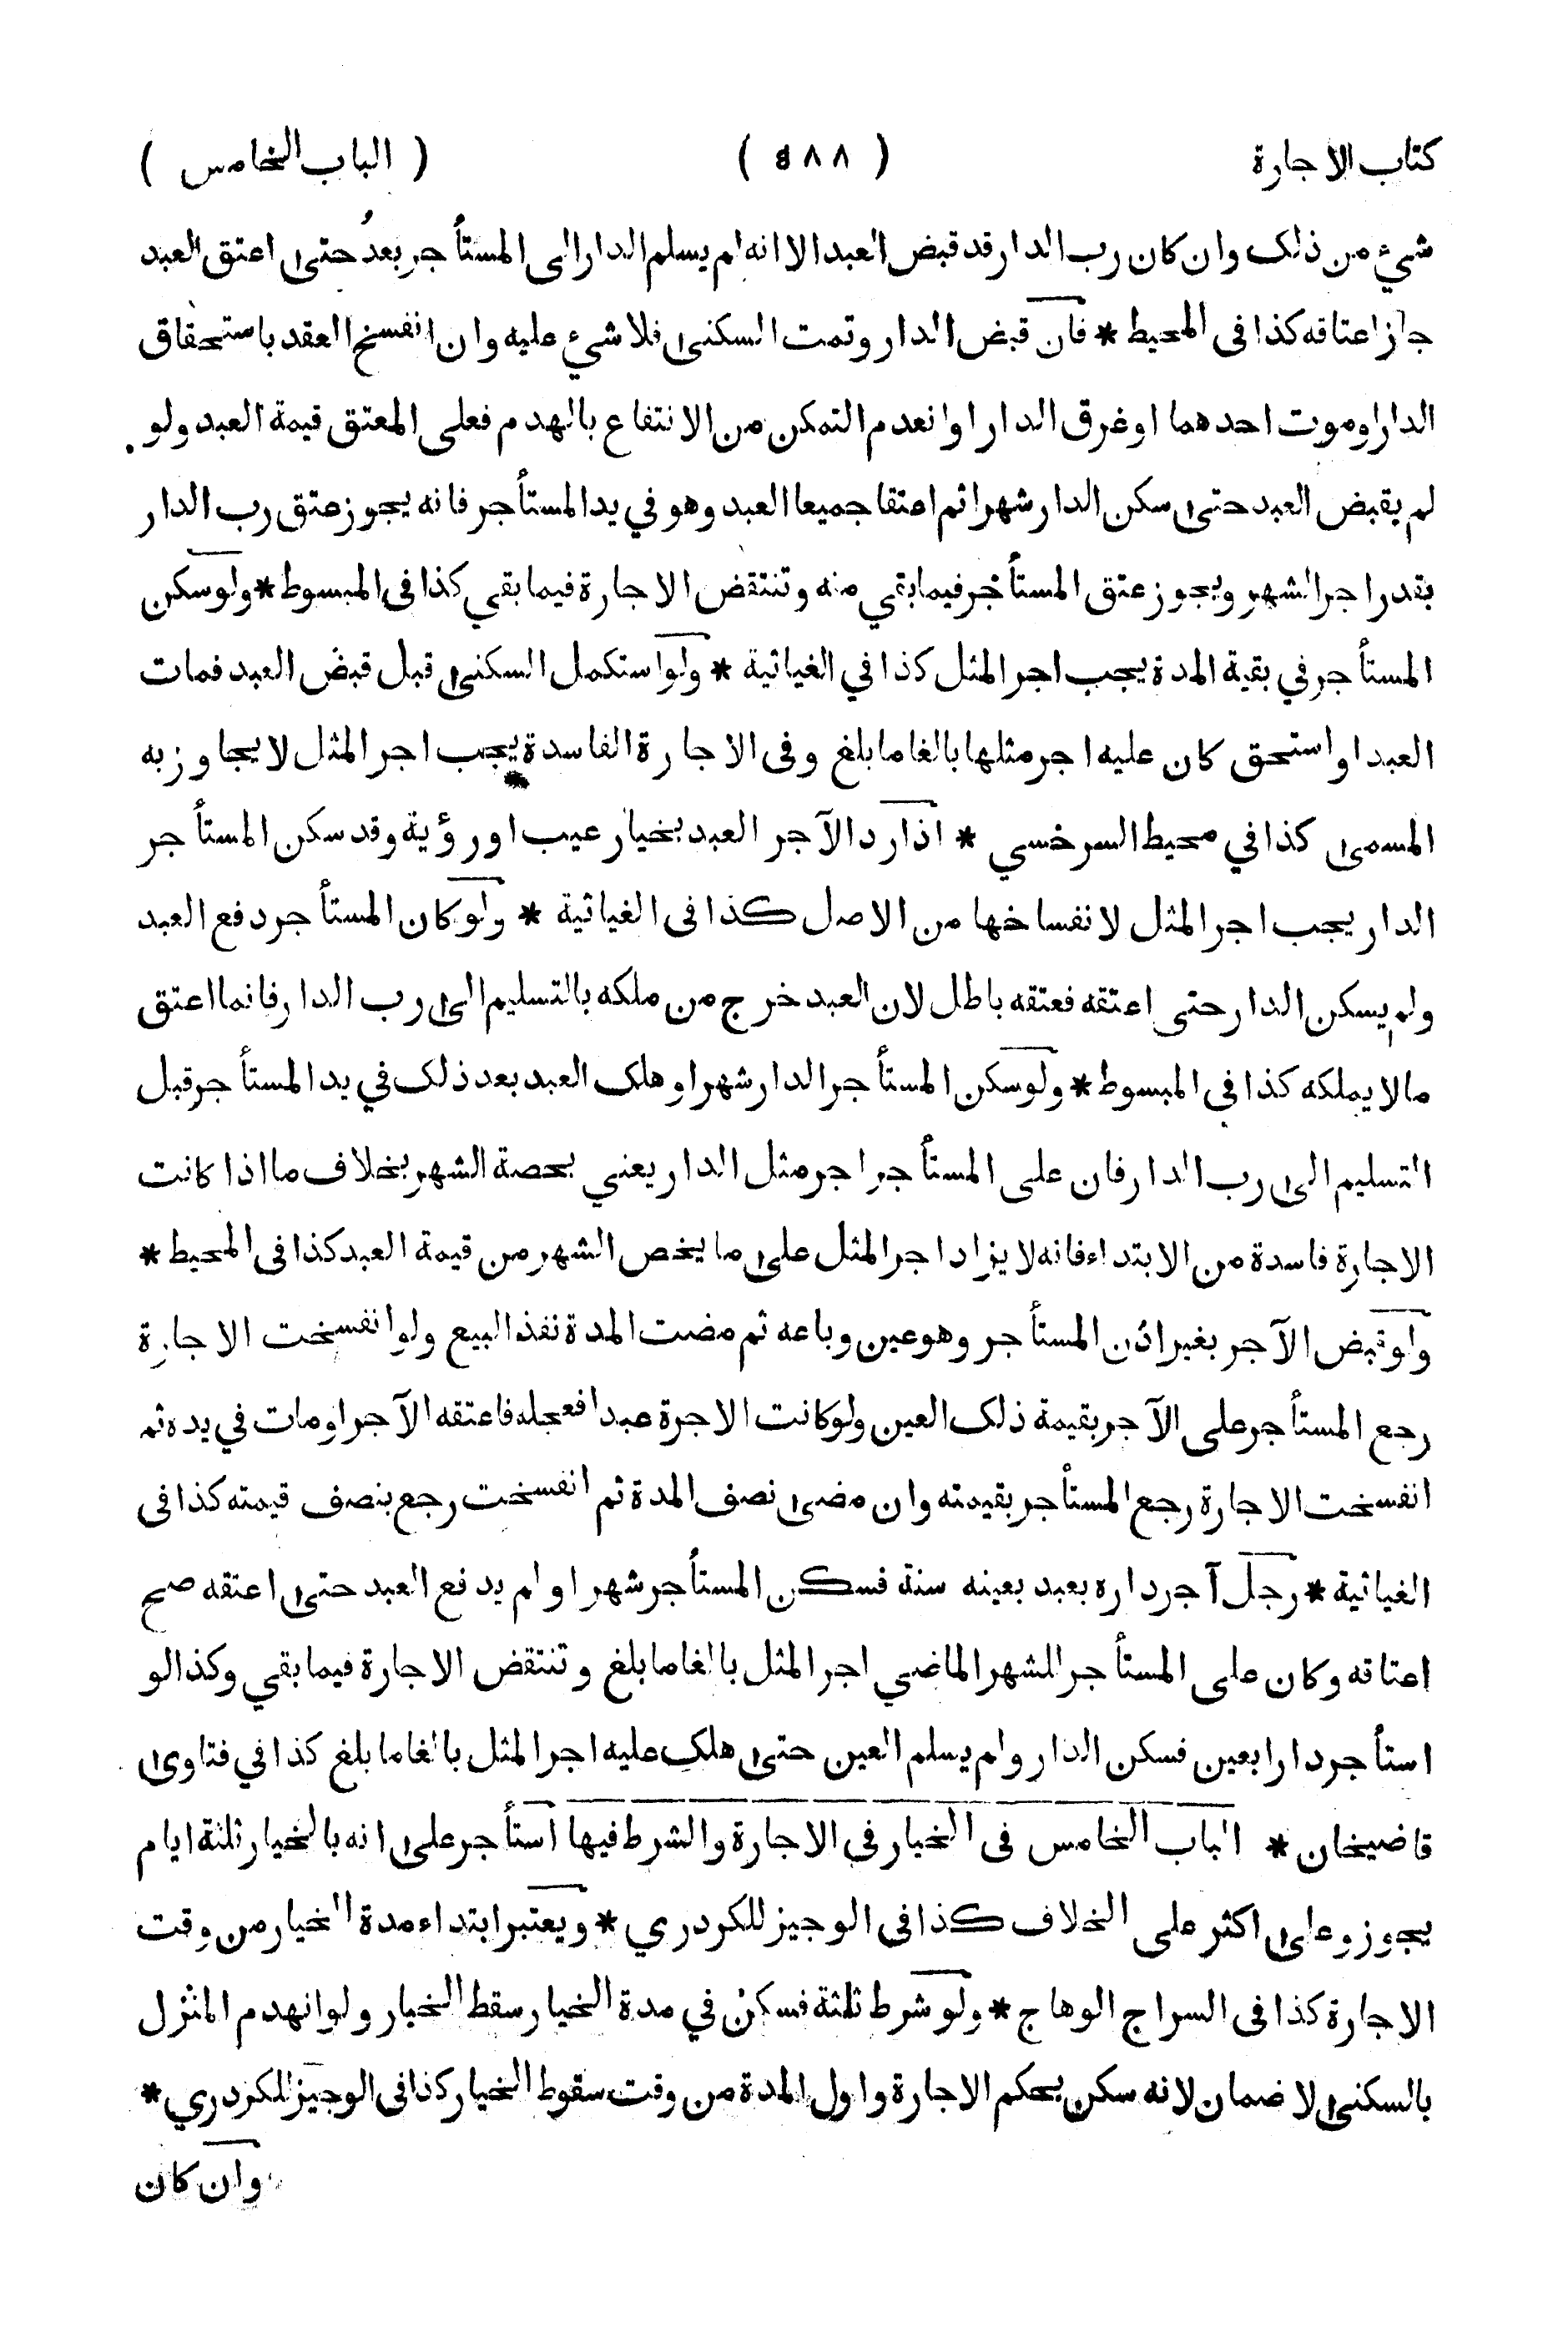 كتاب الاجارة ( ٥٨٨ ) ( الباب الخامس )
شيء من ذلك وان كان رب الدار قد قبض العبد الا انه لم يسلم الدار الى المستأجر بعدُ حتى اعتق العبد
جاز اعتاقه كذا فى المحيط * فان قبض الدار وتمت السكنى فلا شيء عليه وان انفسخ العقد باستحقاق
الدار او موت احدهما او غرق الدار او انعدم التمكن من الانتفاع بالهدم فعلى المعتق قيمة العبد ولو
لم يقبض العبد حتى سكن الدار شهرا ثم اعتقا جميعا العبد وهو في يد المستأجر فانه يجوز عتق رب الدار
بقدر اجر الشهر ويجوز عتق المستأجر فيما بقي منه وتنتقض الاجارة فيما بقي كذا فى المبسوط * ولو سكن
المستأجر في بقية المدة يجب اجر المثل كذا في الغياثية * ولو استكمل السكنى قبل قبض العبد فمات
العبد او استحق كان عليه اجر مثلها بالغا ما بلغ وفى الاجارة الفاسدة يجب اجر المثل لا يجاوز به
المسمى كذا في محيط السرخسي * اذا رد الآجر العبد بخيار عيب او رؤية وقد سكن المستأجر
الدار يجب اجر المثل لانفساخها من الاصل كذا فى الغياثية * ولو كان المستأجر دفع العبد
ولم يسكن الدار حتى اعتقه فعتقه باطل لان العبد خرج من ملكه بالتسليم الى رب الدار فانما اعتق
ما لا يملكه كذا في المبسوط * ولو سكن المستأجر الدار شهرا وهلك العبد بعد ذلك في يد المستأجر قبل
التسليم الى رب الدار فان على المستأجر اجر مثل الدار يعني بحصة الشهر بخلاف ما اذا كانت
الاجارة فاسدة من الابتداء فانه لا يزاد اجر المثل على ما يخص الشهر من قيمة العبد كذا فى المحيط *
ولو قبض الآجر بغير اذن المستأجر وهو عين وباعه ثم مضت المدة نفذ البيع ولو انفسخت الاجارة
رجع المستأجر على الآجر بقيمة ذلك العين ولو كانت الاجرة عبدا فعجله فاعتقه الآجر او مات في يده ثم
انفسخت الاجارة رجع المستأجر بقيمته وان مضى نصف المدة ثم انفسخت رجع بنصف قيمته كذا فى
الغياثية * رجل آجر داره بعبد بعينه سنة فسكن المستأجر شهرا ولم يدفع العبد حتى اعتقه صح
اعتاقه وكان على المستأجر للشهر الماضي اجر المثل بالغا ما بلغ وتنتقض الاجارة فيما بقي وكذا لو
استأجر دارا بعين فسكن الدار ولم يسلم العين حتى هلك عليه اجر المثل بالغا ما بلغ كذا في فتاوى
قاضيخان * الباب الخامس فى الخيار في الاجارة والشرط فيها استأجر على انه بالخيار ثلثة ايام
يجوز وعلى اكثر على الخلاف كذا فى الوجيز للكردري * ويعتبر ابتداء مدة الخيار من وقت
الاجارة كذا فى السراج الوهاج * ولو شرط ثلثة فسكن في مدة الخيار سقط الخيار ولو انهدم المنزل
بالسكنى لا ضمان لانه سكن بحكم الاجارة واول المدة من وقت سقوط الخيار كذا فى الوجيز للكردري *
وان كان